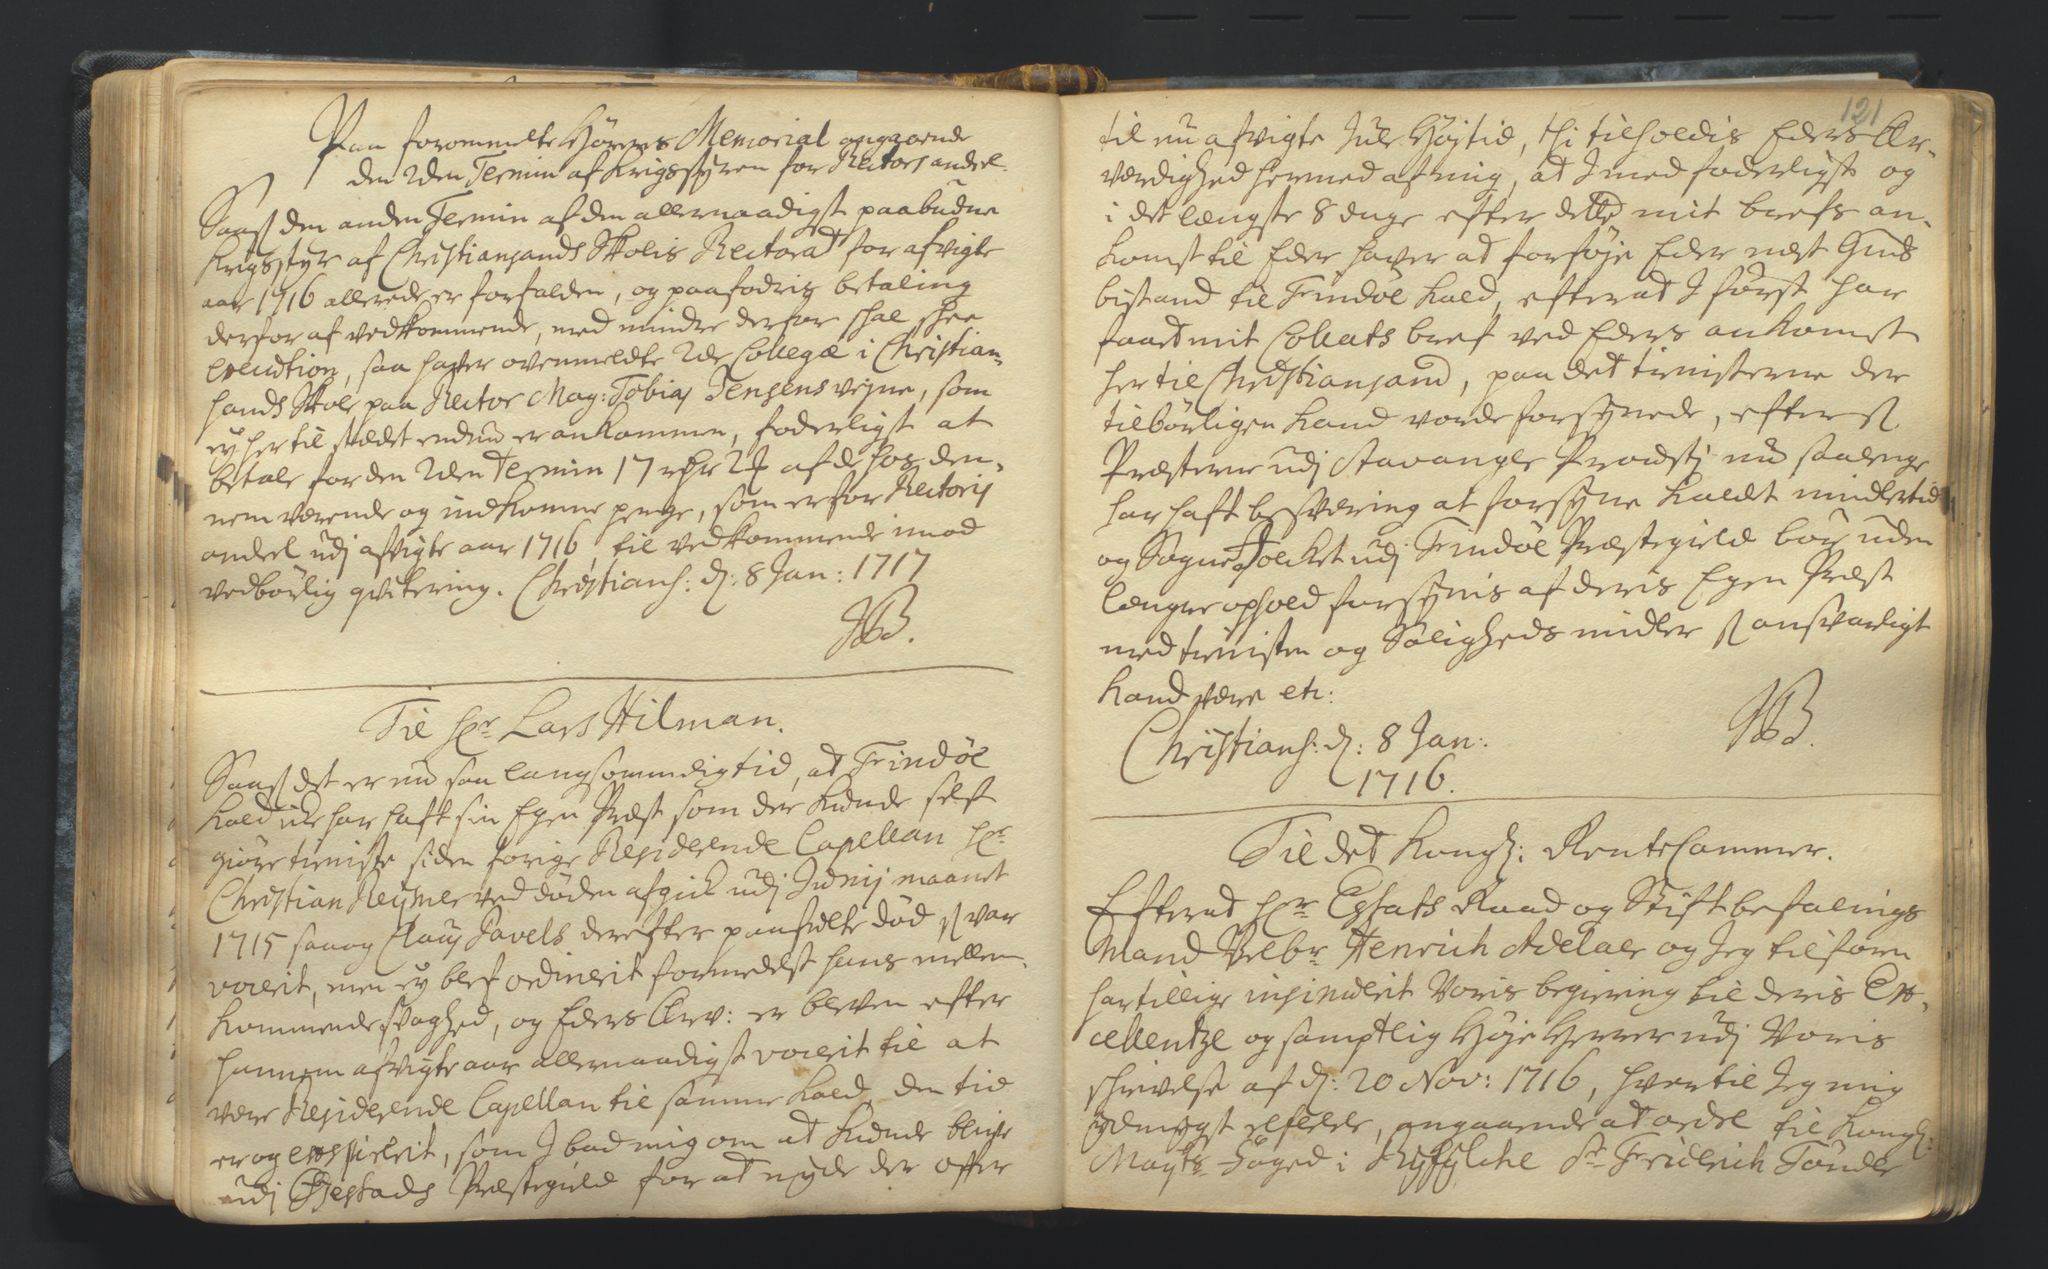 Paa forommelte Hørers Memorial angaaende
den 2den Termin af Krigsstyren for Rectors andeel.
Saasom den anden Termin af den allernaadigst paabudne
Krigsstyr af Christiansands Skolis Rectorat for afvigte
aar 1716 allerede er forfalden, og paafodris betaling
derfor af vedkommende, med mindre derfor skal skee
execution, saa hafver ovenmeldte 2de Collegæ i Christian-
sands Skole paa Rector Mag: Tobias Jensens vegne, som
ey her til stædet endnu er ankommen, foderligst at
betale for den 2den Termin 17 rdr 2 ... af de hos den-
nem værende og indkomne penge, som er for Rectoris
andeel udj afvigte aar 1716, til vedkommende imod
vedbørlig qvitering. Christians: d: 8 Jan: 1717
JB.
Til hr. Lars Hilman.
Saasom det er nu saa langsommelig tid, at Findøe
Kald icke har haft sin Egen Præst som der kunde self
giøre tieniste siden forige Residerende Capellan hr.
Christian Reymer ved døden afgick udj Junij maanet
1715 saa og Claus Pavels derefter paafulte død som var
vocerit, men ey blef ordinerit formedelst hans mellem-
kommende svaghed, og Eders Ærv: er bleven efter
hannem afvigte aar allernaadigst vocerit til at
være Residerende Capellan til samme Kald, den tid
er og exspirerit, som I bad mig om at kunde blive
udj Øjestads Præstegield for at nyde der offer
121
til nu afvigte Jule Højtid, thi tilholdis Eders Ær-
værdighed hermed af mig, at I med foderligst og
i det længste 8 dage efter dette mit brefs an-
komst til Eder hafver at forføje Eder næst Guds
bistand til Findøe Kald, efter at I først har
faaet mit Collats bref ved Eders ankomst
her til Christiansand, paa det tienisterne der
tilbørligen kand vorde forsynede, eftersom
Præsterne udj Stavanger Provstj nu saalenge
har haft besværing at forsyne Kaldet imidlertid
og Sogne Folcket udj Findøe Præstegield bør uden
længre ophold forsynis af deris Egen Præst
med tienisten og Saligheds midler som ansvarligt
kand være etc:
Christians: d: 8 Jan:
1716.
JB.
Til det Kongl: Rente Cammer.
Efterat hr. Etats Raad og Stiftbefalings
Mand Velbr. Henrich Adelaer og Jeg tilforn
har tillige insinuerit Voris begiering til deris Ex-
cellentze og samptlig Høje Herrer udj Voris
skrivelse af d: 20 Nov: 1716, hvortil Jeg mig
ydmygst referer, angaaende at ordre til Kongl:
Mayts Foged i Ryfylche Sr. Friderich Tønder